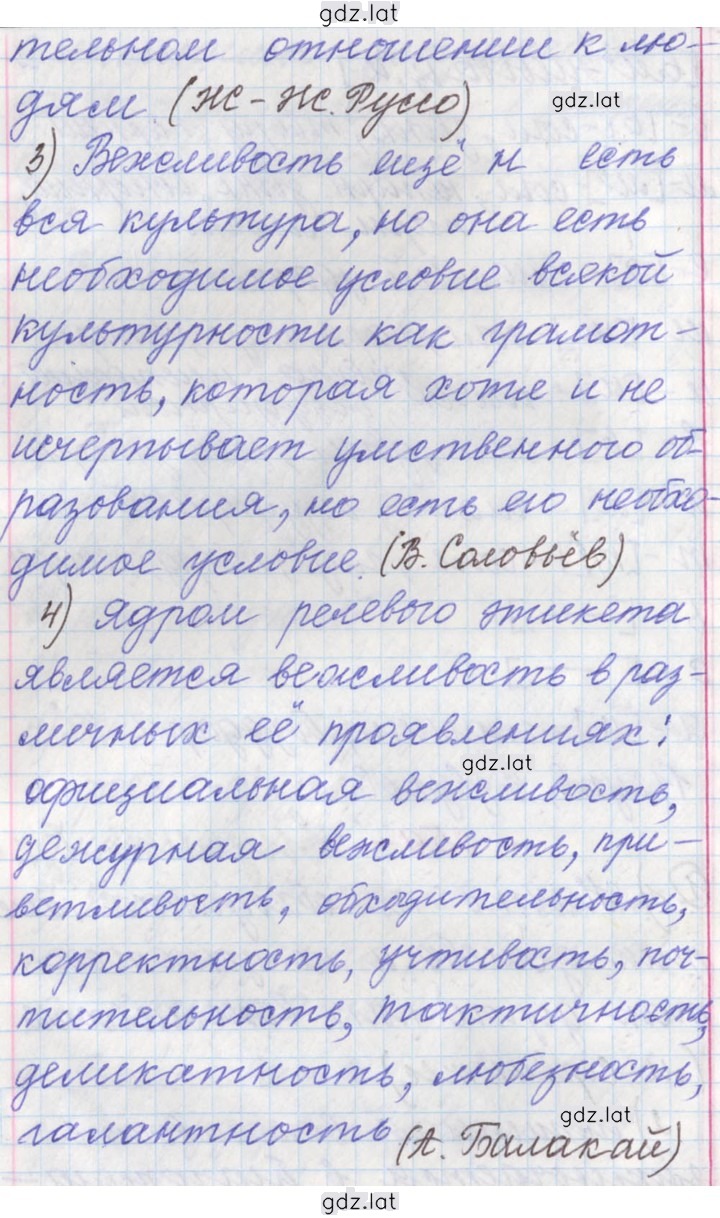 gdz.lat
тельном отношении к лю-
дям. (Ж-Ж. Руссо) gdz.lat
3) Вежливость ещё н есть
вся культура, но она есть
необходимое условие всякой
культурности как грамот-
ность, которая хоте и не
исчерпывает умственного об
разования, но есть его необхо-
димое условие. (В. Соловьёв)
4) Ядром речевого этикета
является вежливость в раз-
личных её проявлениях:
gdz.lat
официальная вежливость,
дежурная вежливость, при-
ветливость, обходительность,
корректность, учтивость, поч-
тительность, тактичность,
деликатность, любезность,
gdz.lat
галантность (А. Балакай)
gdz.lat